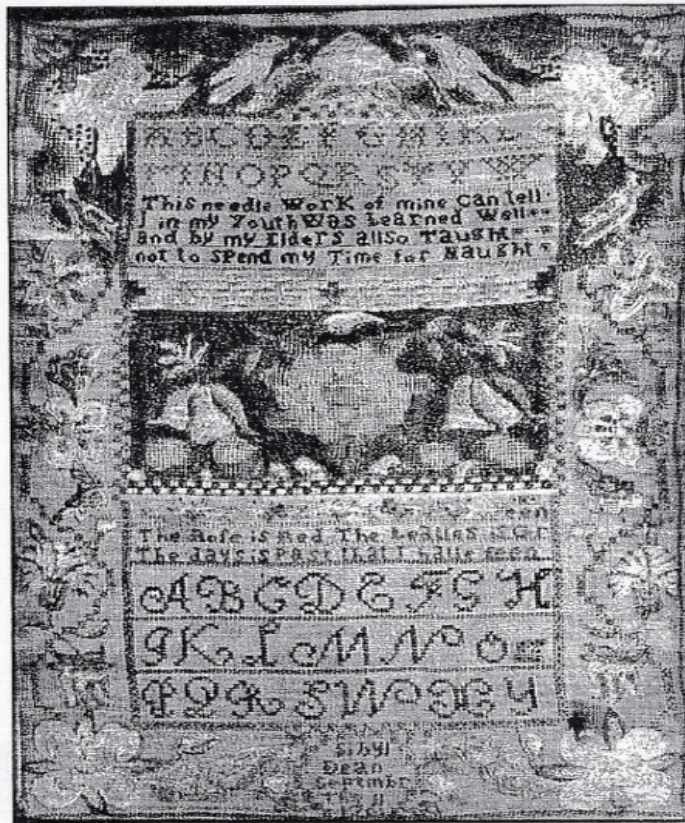 ABCDEFGHIKL
MNOPQRSTVW
This needle Work of mine Can tell
I in my Youth Was Learned Well
and by my Elders allso Taught
not to Spend my Time for Naught
een
The Rose is Red The Leaves is Gr
The days is Past that I haue seen
ABCDEFGH
IKLMNO
PQRSW Y
Sibyl
Dean
Septembr